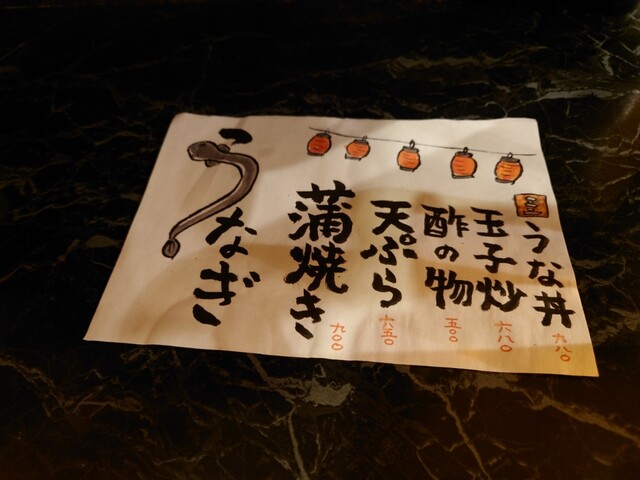 うな丼
九八〇
玉子炒
六八〇
酢の物
五〇〇
天ぷら
六五〇
蒲焼き
九〇〇
うなぎ